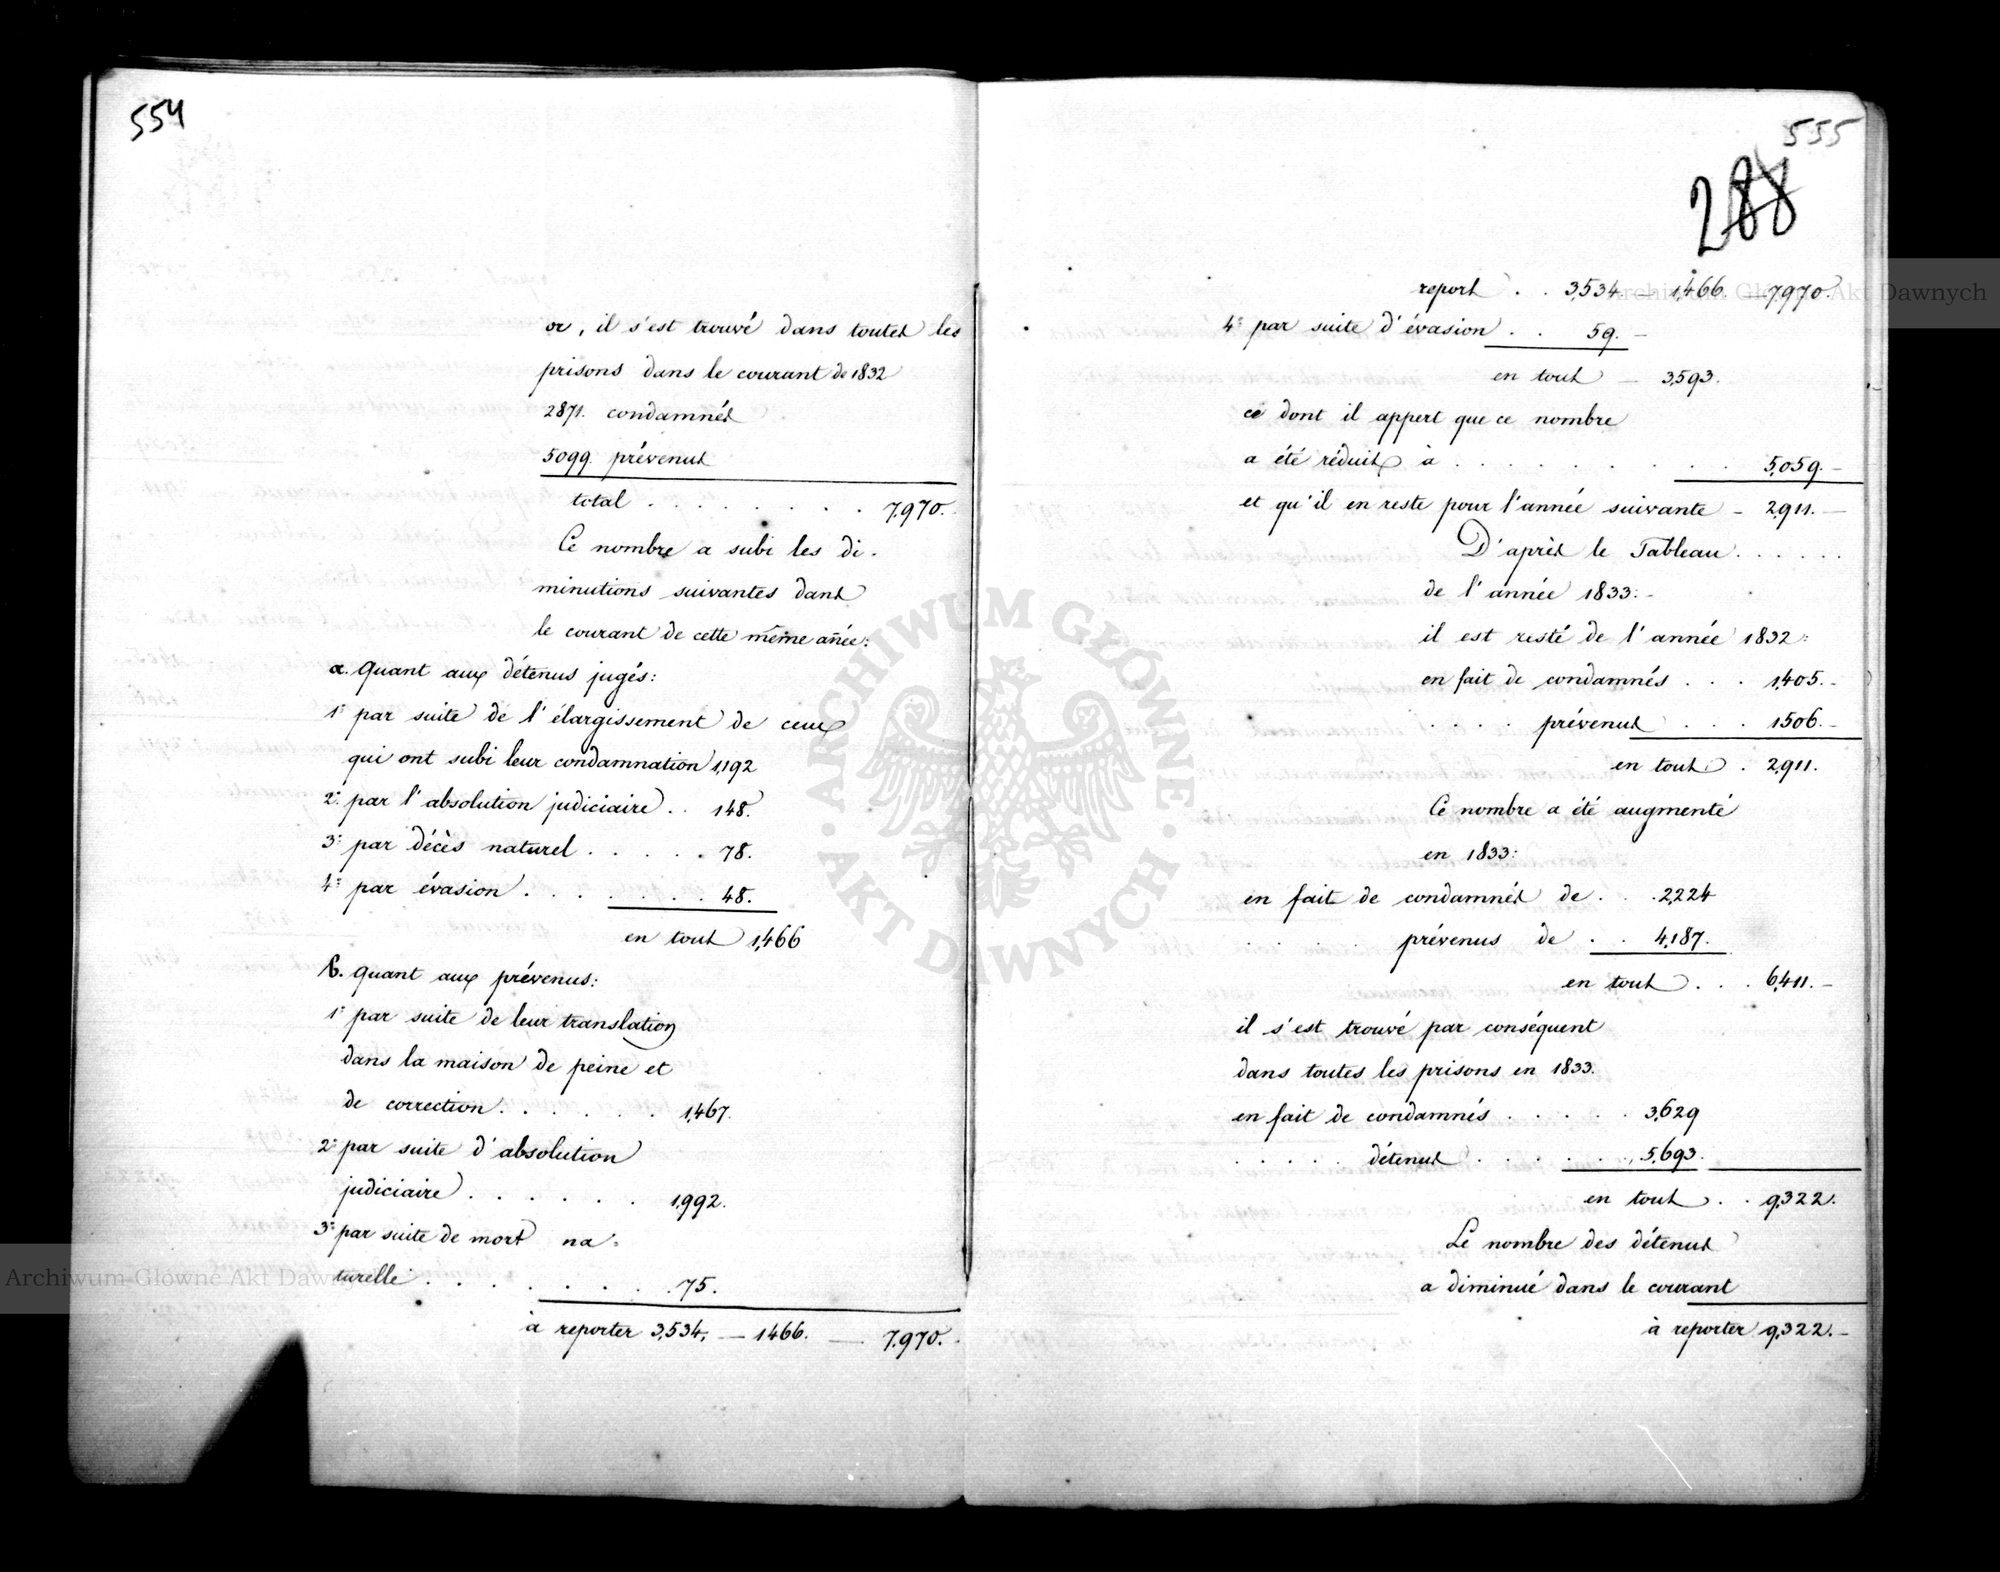 554
or, il s'est trouvé dans toutes les
prisons dans le courant de 1832
2871. condamnés
5099. prévenus
total . . . . . . . . 7,970.
Ce nombre a subi les di-
minutions suivantes dans
le courant de cette même année:
a. quant aux détenus jugés:
1º par suite de l'élargissement de ceux
qui ont subi leur condamnation 1,192
2º par l'absolution judiciaire . . 148.
3º par décès naturel . . . . . 78.
4º par évasion . . . . . . . 48.
en tout 1,466
b. quant aux prévenus:
1º par suite de leur translation
dans la maison de peine et
de correction . . . . . . 1,467.
2º par suite d'absolution
judiciaire . . . . . . 1,992.
3º par suite de mort na-
turelle . . . . . . . 75.
à reporter 3,534. — 1466. — 7,970.
555
288
report . . 3,534 — 1,466 — 7,970.
4º par suite d'évasion . . 59. —
en tout — 3,593.
ce dont il appert que ce nombre
a été réduit à . . . . . . . . 5,059. —
et qu'il en reste pour l'année suivante — 2,911. —
D'après le Tableau . . . . . .
de l'année 1833: —
il est resté de l'année 1832:
en fait de condamnés . . . 1,405. —
. . . . prévenus . . . 1506. —
en tout . 2,911.
Ce nombre a été augmenté
en 1833:
en fait de condamnés de . . . 2,224
. . . . prévenus de . . 4,187.
en tout . . . 6,411. —
il s'est trouvé par conséquent
dans toutes les prisons en 1833.
en fait de condamnés . . . . . 3,629
. . . . . détenus . . . . . . . 5,693.
en tout . . 9,322.
Le nombre des détenus
a diminué dans le courant
à reporter 9,322. —
Archiwum Główne Akt Dawnych
Archiwum Główne Akt Dawnych
ARCHIWUM GŁÓWNE · AKT DAWNYCH ·